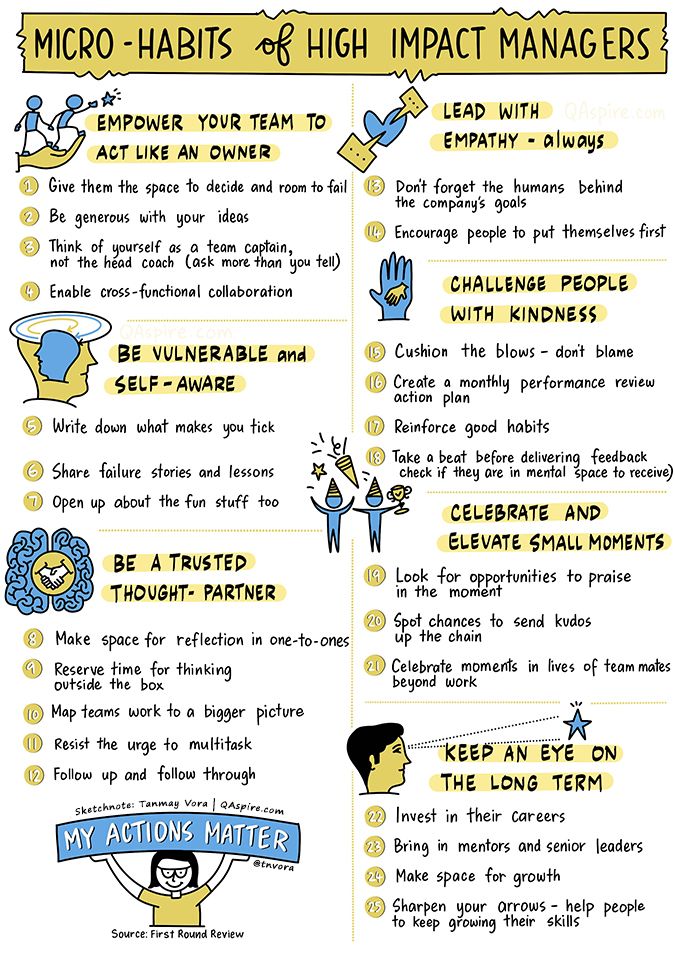 MICRO-HABITS of HIGH IMPACT MANAGERS
EMPOWER YOUR TEAM TO
ACT LIKE AN OWNER
1 Give them the space to decide and room to fail
2 Be generous with your ideas
3 Think of yourself as a team captain,
not the head coach (ask more than you tell)
4 Enable cross-functional collaboration
QAspire.com
BE VULNERABLE and
SELF-AWARE
5 Write down what makes you tick
6 Share failure stories and lessons
7 Open up about the fun stuff too
BE A TRUSTED
THOUGHT-PARTNER
8 Make space for reflection in one-to-ones
9 Reserve time for thinking
outside the box
10 Map teams work to a bigger picture
11 Resist the urge to multitask
12 Follow up and follow through
Sketchnote: Tanmay Vora | QAspire.com
MY ACTIONS MATTER
@tnvora
Source: First Round Review
LEAD WITH
QAspire.com
EMPATHY - always
13 Don't forget the humans behind
the company's goals
14 Encourage people to put themselves first
CHALLENGE PEOPLE
WITH KINDNESS
15 Cushion the blows - don't blame
16 Create a monthly performance review
action plan
17 Reinforce good habits
18 Take a beat before delivering feedback
check if they are in mental space to receive)
CELEBRATE AND
ELEVATE SMALL MOMENTS
19 Look for opportunities to praise
in the moment
20 Spot chances to send kudos
up the chain
21 Celebrate moments in lives of team mates
beyond work
KEEP AN EYE ON
THE LONG TERM
22 Invest in their careers
23 Bring in mentors and senior leaders
24 Make space for growth
25 Sharpen your arrows - help people
to keep growing their skills